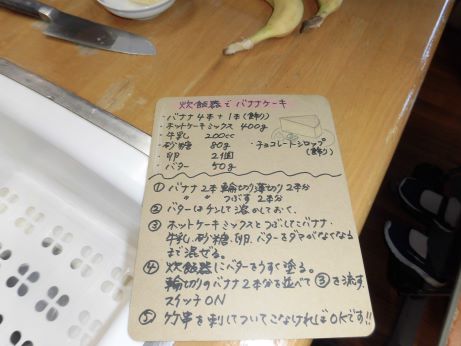 炊飯器でバナナケーキ
・バナナ 4本+1本(飾り)
・ホットケーキミックス 400g
・牛乳 200cc
・砂糖 80g ・チョコレートシロップ(飾り)
・卵 2個
・バター 50g
① バナナ2本輪切り薄切り2本分
〃 〃 つぶす 2本分
② バターはチンして溶かしておく。
③ ホットケーキミックスとつぶしたバナナ・
牛乳.砂糖.卵.バターをダマがなくなる
まで混ぜる。
④ 炊飯器にバターをうすく塗る。
輪切りのバナナ2本分を並べて③を流す。
スイッチON
⑤ 竹串を刺してついてこなければOKです!!